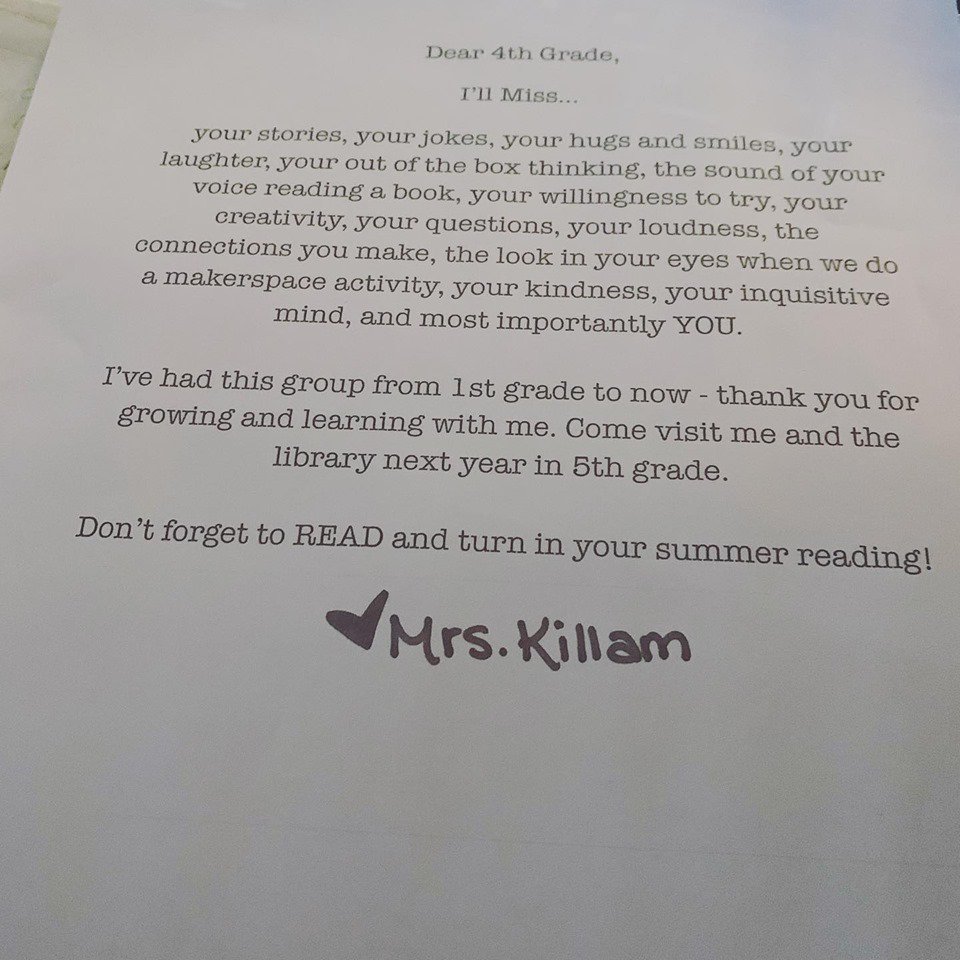 Dear 4th Grade,
I'll Miss...
your stories, your jokes, your hugs and smiles, your
laughter, your out of the box thinking, the sound of your
voice reading a book, your willingness to try, your
creativity, your questions, your loudness, the
connections you make, the look in your eyes when we do
a makerspace activity, your kindness, your inquisitive
mind, and most importantly YOU.
I've had this group from 1st grade to now - thank you for
growing and learning with me. Come visit me and the
library next year in 5th grade.
Don't forget to READ and turn in your summer reading!
Mrs. Killam